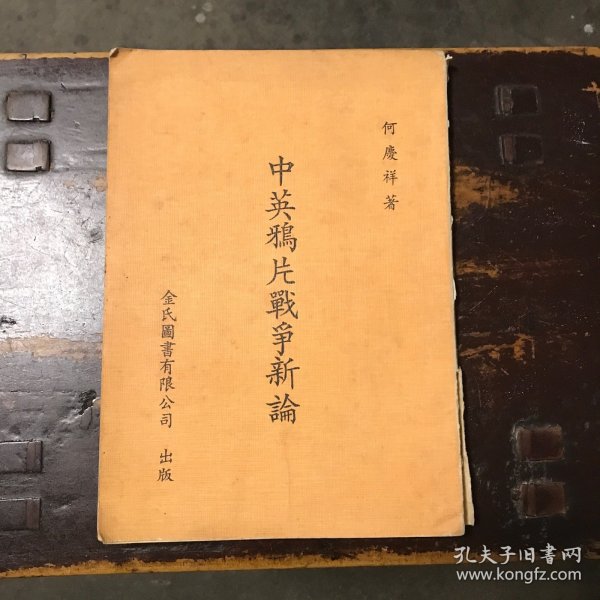 何慶祥著
中英鴉片戰爭新論
金氏圖書有限公司 出版
孔夫子旧書网
www.kongfz.com